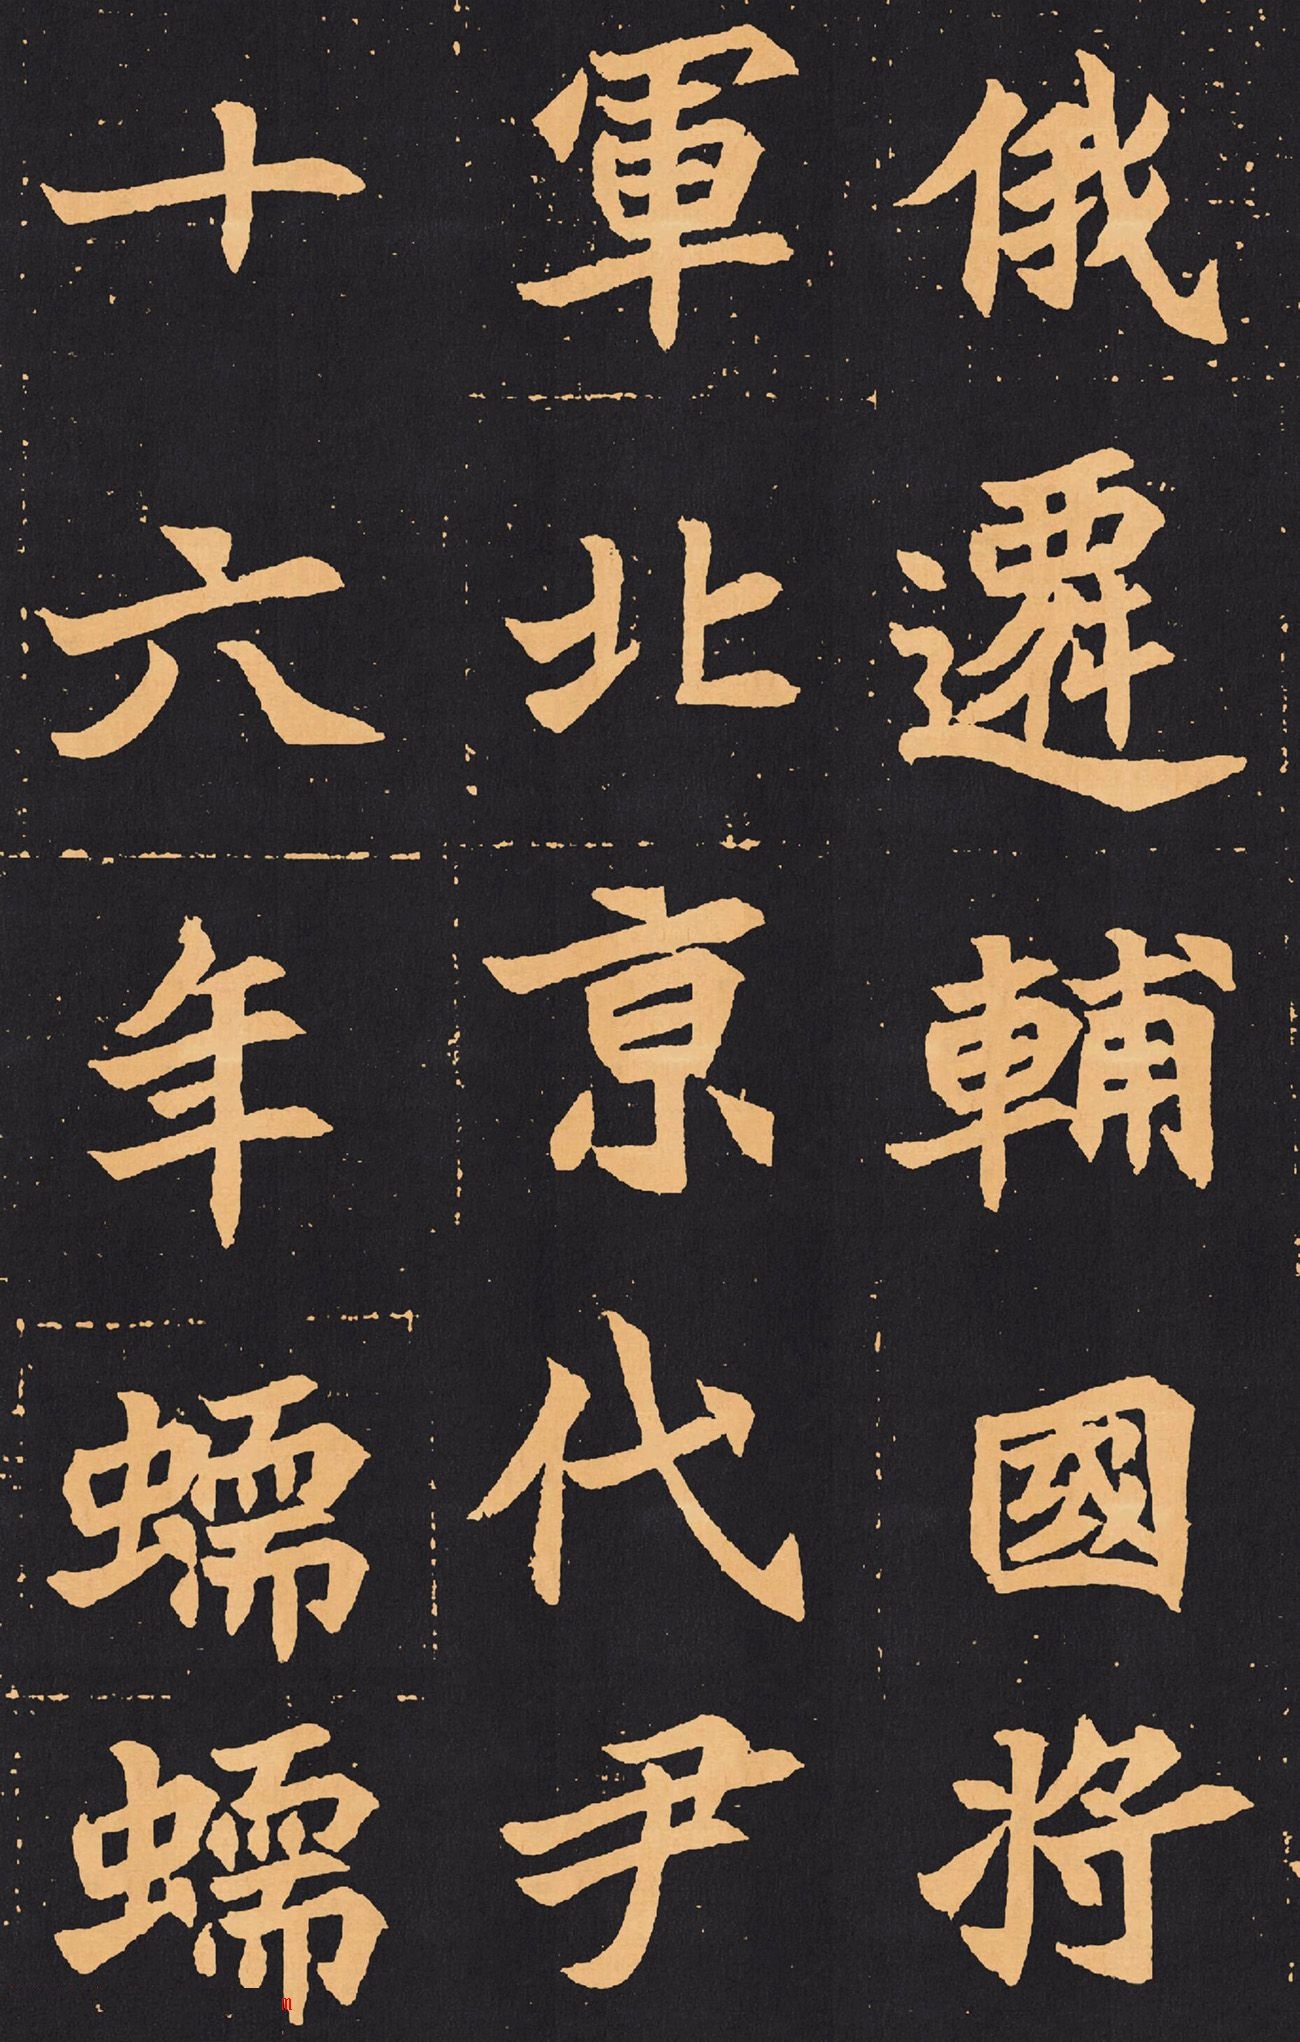 俄遷輔國將
軍北京代尹
十六年蠕蠕